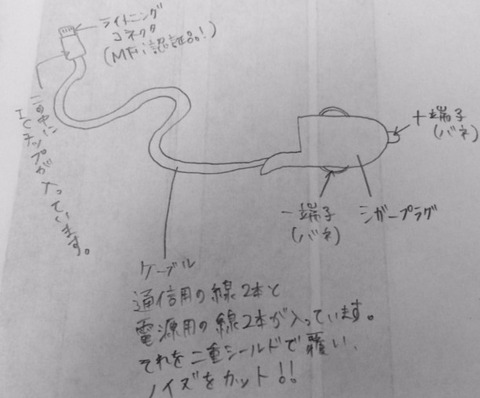 ライトニング
コネクタ
(MFi認証品!)
この中に
ICチップが入っています。
+端子
(バネ)
-端子
(バネ)
シガープラグ
ケーブル
通信用の線2本と
電源用の線2本が入っています。
それを二重シールドで覆い、
ノイズをカット!!